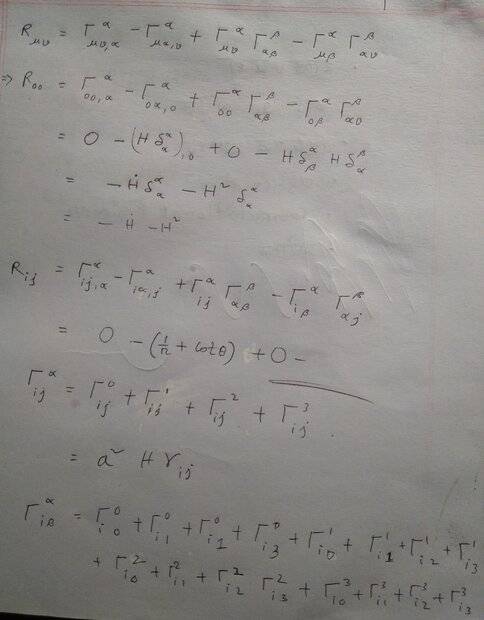 R_{μν} = Γ^α_{μν,α} − Γ^α_{μα,ν} + Γ^α_{μν} Γ^β_{αβ} − Γ^α_{μβ} Γ^β_{αν}
⇒ R_{00} = Γ^α_{00,α} − Γ^α_{0α,0} + Γ^α_{00} Γ^β_{αβ} − Γ^α_{0β} Γ^β_{α0}
= 0 − (H δ^α_α)_{,0} + 0 − H δ^α_β H δ^β_α
= − Ḣ δ^α_α − H² δ^α_α
= − Ḣ − H²
R_{ij} = Γ^α_{ij,α} − Γ^α_{iα,j} + Γ^α_{ij} Γ^β_{αβ} − Γ^α_{iβ} Γ^β_{αj}
= 0 − (1/r + cotθ) + 0 −
Γ^α_{ij} = Γ^0_{ij} + Γ^1_{ij} + Γ^2_{ij} + Γ^3_{ij}
= a² H γ_{ij}
Γ^α_{iβ} = Γ^0_{i0} + Γ^0_{i1} + Γ^0_{i1} + Γ^0_{i3} + Γ^1_{i0} + Γ^1_{i1} + Γ^1_{i2} + Γ^1_{i3}
+ Γ^2_{i0} + Γ^2_{i1} + Γ^2_{i2} Γ^2_{i3} + Γ^3_{i0} + Γ^3_{i1} + Γ^3_{i2} + Γ^3_{i3}